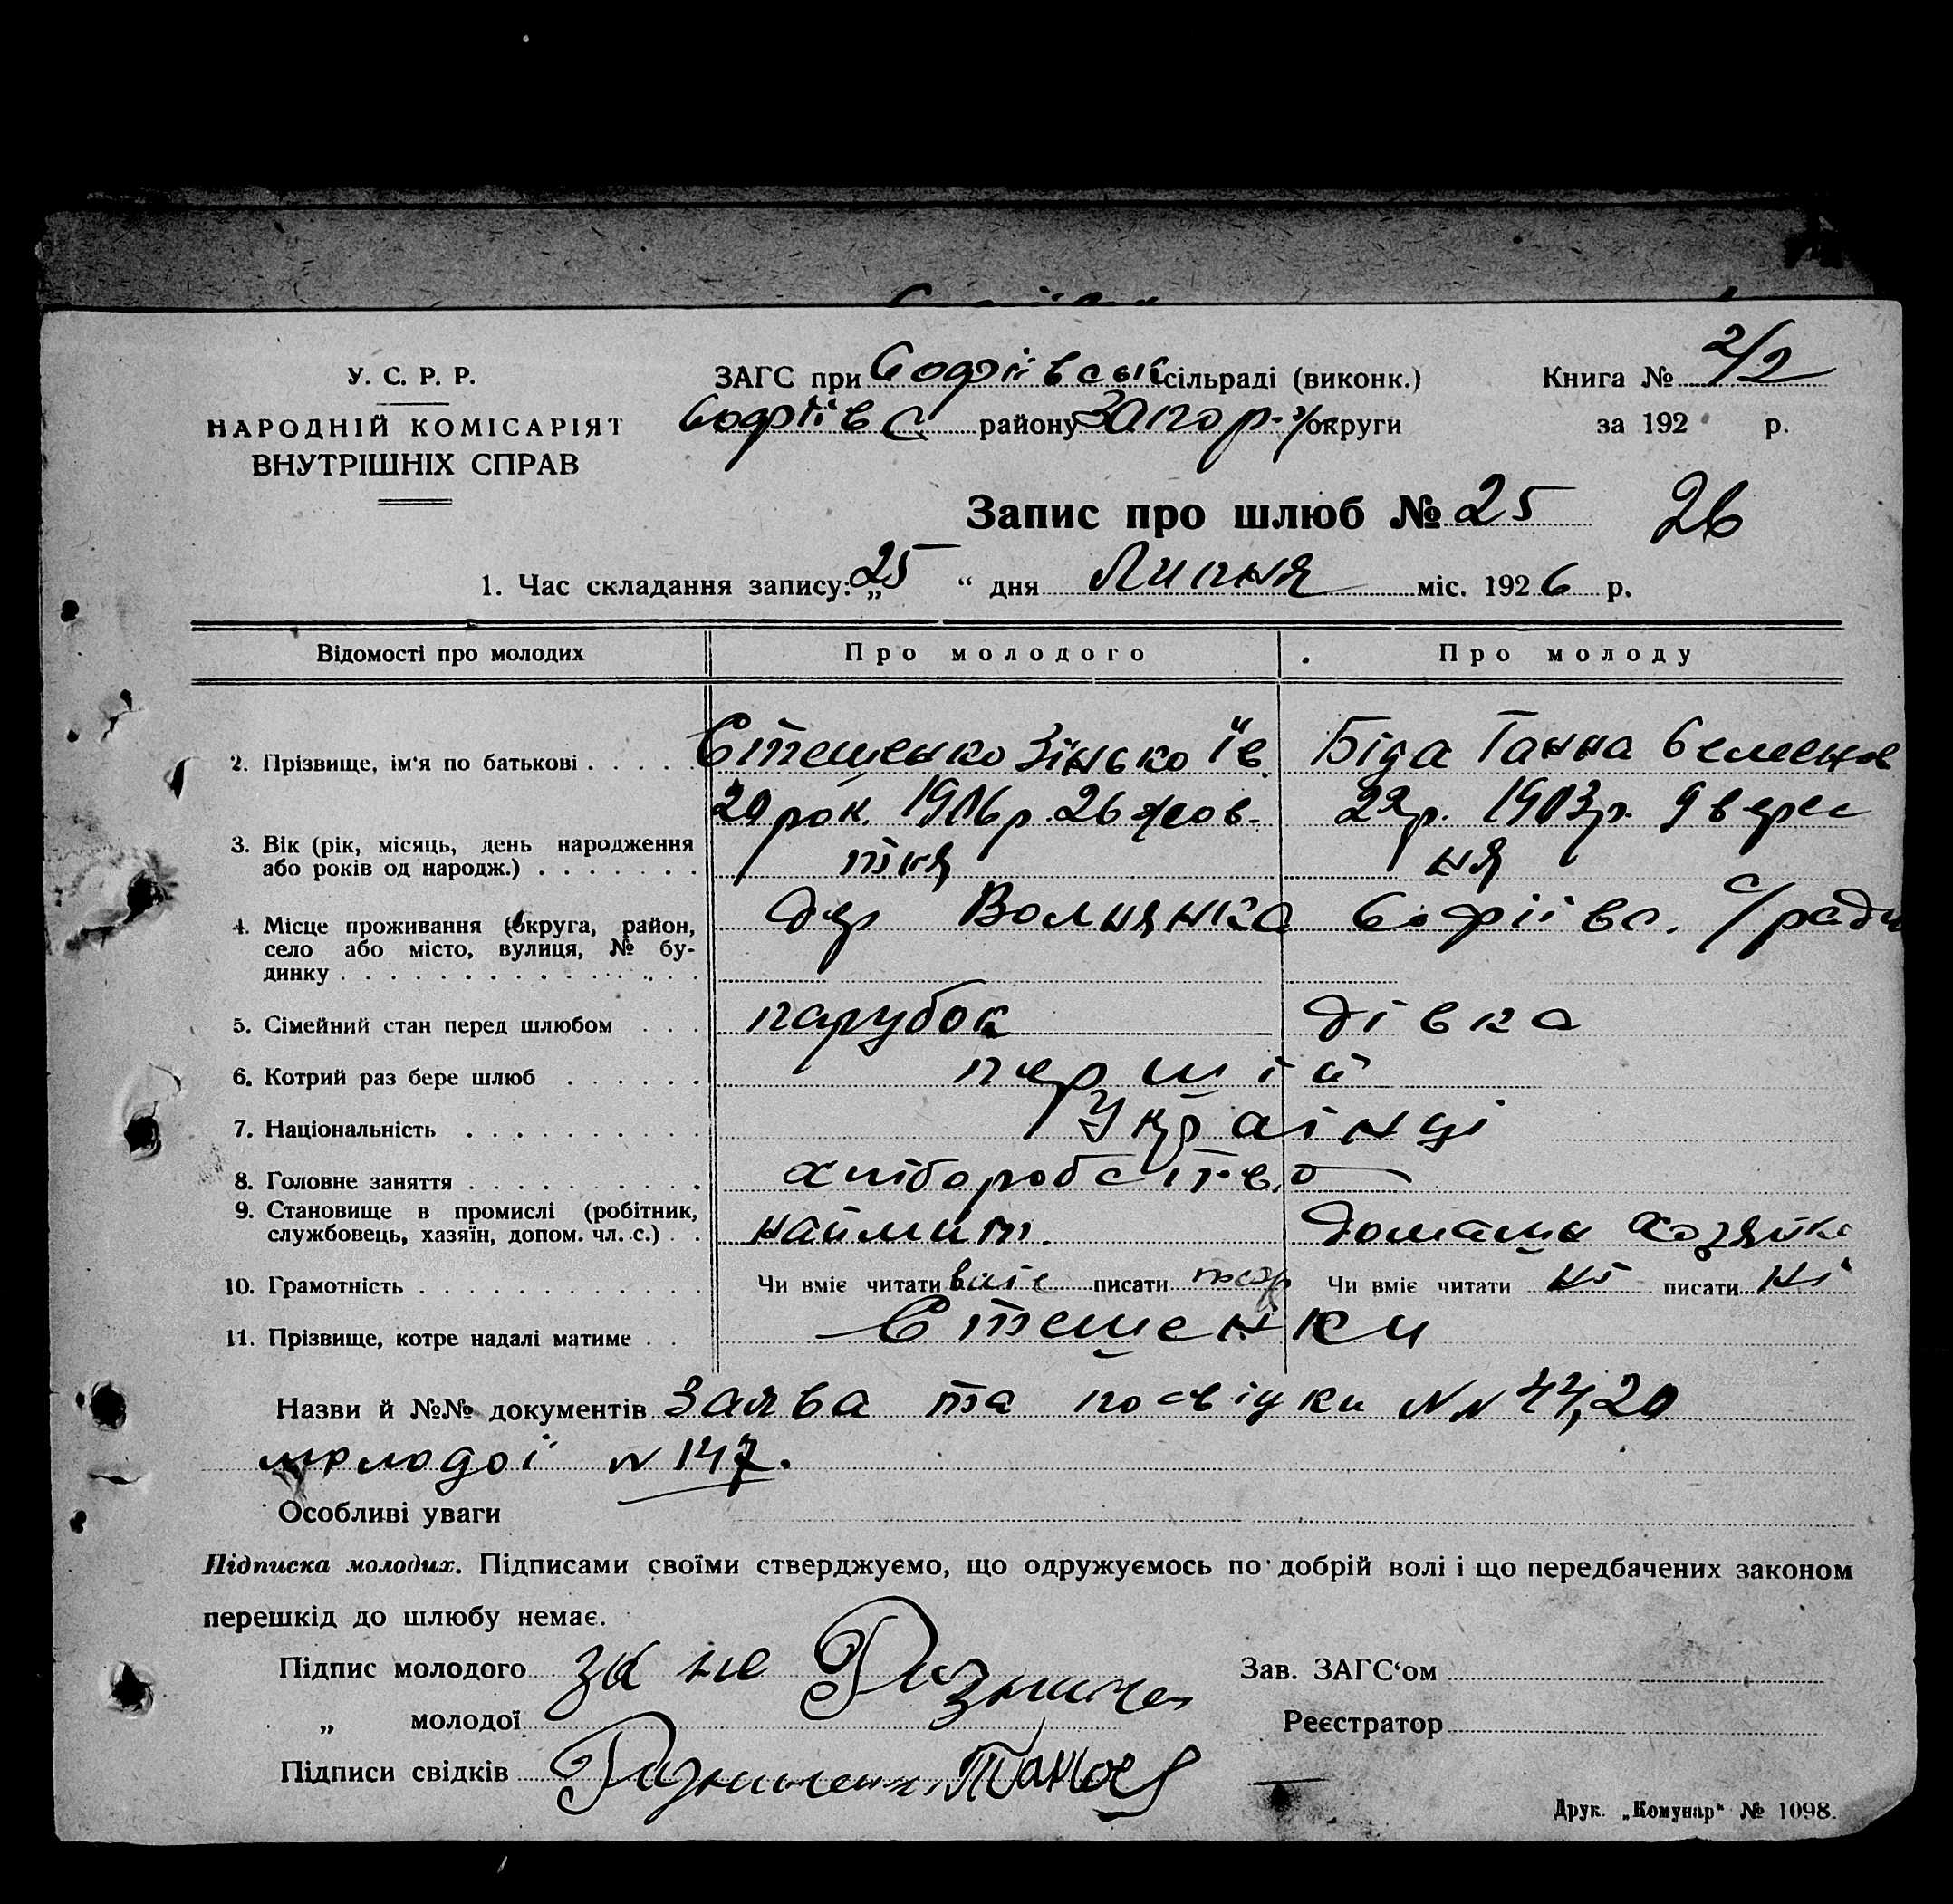 У. С. Р. Р.
НАРОДНІЙ КОМІСАРІЯТ
ВНУТРІШНІХ СПРАВ
ЗАГС при Софіївськ сільраді (виконк.)
Софіївс району Запор. округи
Книга № 2/2
за 192 р.
Запис про шлюб № 25 26
1. Час складання запису: „25“ дня Липня міс. 1926 р.
Відомості про молодих Про молодого Про молоду
2. Прізвище, ім'я по батькові Стешенко Зінько Їв. Біда Ганна Семенов
20 рок. 1906 р. 26 жов- 22 р. 1903 р. 9 верес
3. Вік (рік, місяць, день народження
або років од народж.) тня ня
4. Місце проживання (округа, район,
село або місто, вулиця, № бу-
динку дер Волнянка Софіївс. с/ради
5. Сімейний стан перед шлюбом парубок дівка
6. Котрий раз бере шлюб перший
7. Національність Українці
8. Головне заняття хліборобство
9. Становище в промислі (робітник,
службовець, хазяїн, допом. чл. с.) наймит. домашн хозяйка
10. Грамотність Чи вміє читати вміє писати Чи вміє читати ні писати ні
11. Прізвище, котре надалі матиме Стешенки
Назви й №№ документів Заява та посвідки NN 44,20
молодої N 147.
Особливі уваги
Підписка молодих. Підписами своїми стверджуємо, що одружуємось по добрій волі і що передбачених законом
перешкід до шлюбу немає.
Підпис молодого за не
Зав. ЗАГС'ом
„ молодої
Реєстратор
Підписи свідків
Друк. „Комунар“ № 1098.